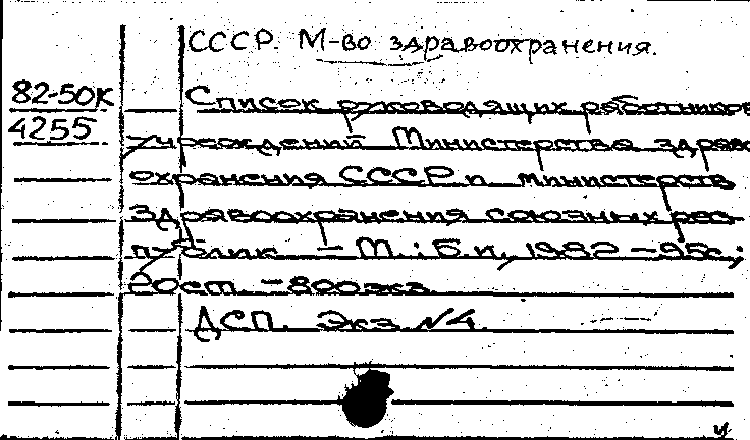 СССР. М-во здравоохранения.
82-50к
4255
Список руководящих работников
учреждений Министерства здраво
охранения СССР и министерств
здравоохранения союзных рес-
публик. – М.: Б.и., 1982 – 95с.;
20см. – 800экз.
ДСП. Экз. №4.